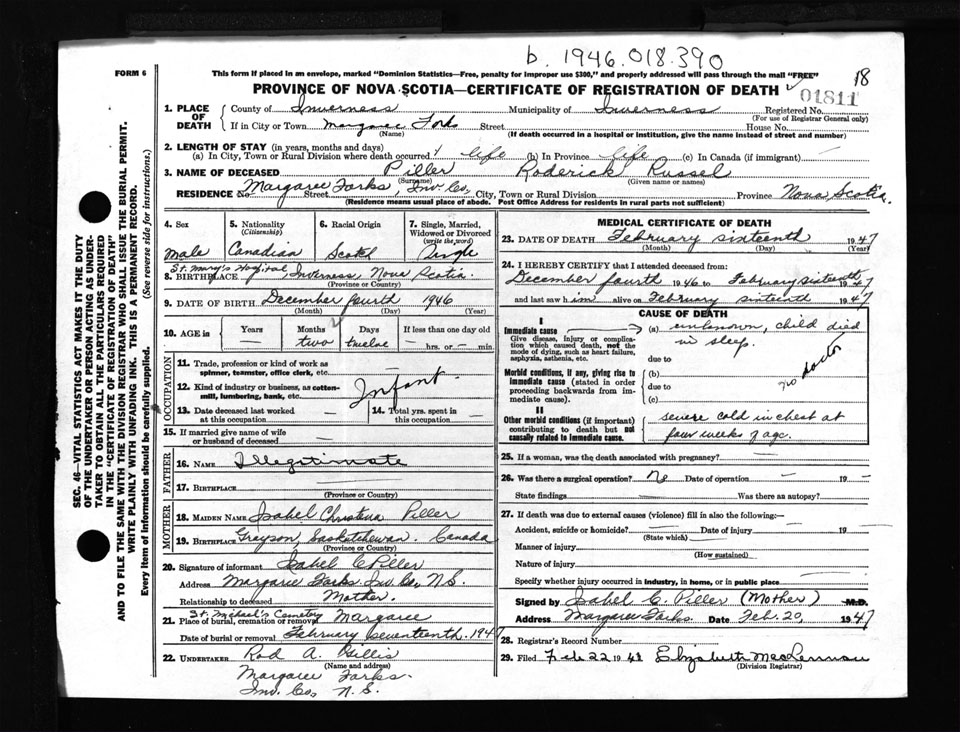 b. 1946.018.390
FORM 6
This form if placed in an envelope, marked "Dominion Statistics—Free, penalty for improper use $300," and properly addressed will pass through the mail "FREE"
18
PROVINCE OF NOVA SCOTIA—CERTIFICATE OF REGISTRATION OF DEATH
01811
1. PLACE OF DEATH County of Inverness Municipality of Inverness Registered No.
(For use of Registrar General only)
If in City or Town Margaree Forks Street House No.
(Name) (If death occurred in a hospital or institution, give the name instead of street and number)
2. LENGTH OF STAY (in years, months and days)
(a) In City, Town or Rural Division where death occurred life (b) In Province life (c) In Canada (if immigrant) —
3. NAME OF DECEASED Piller Roderick Russel
(Surname) (Given name or names)
RESIDENCE No. Margaree Forks Street Inv. Co, City, Town or Rural Division Province Nova Scotia.
(Residence means usual place of abode. Post Office Address for residents in rural parts not sufficient)
4. Sex 5. Nationality (Citizenship) 6. Racial Origin 7. Single, Married, Widowed or Divorced (write the word)
Male Canadian Scotch Single
St. Mary's Hospital
8. BIRTHPLACE Inverness Nova Scotia.
(Province or Country)
9. DATE OF BIRTH December fourth 1946
(Month) (Day) (Year)
10. AGE in Years Months Days If less than one day old
— two twelve — hrs. or — min.
OCCUPATION
11. Trade, profession or kind of work as spinner, teamster, office clerk, etc.
12. Kind of industry or business, as cotton-mill, lumbering, bank, etc.
Infant.
13. Date deceased last worked at this occupation — 14. Total yrs. spent in this occupation —
15. If married give name of wife or husband of deceased —
FATHER
16. NAME Illegitimate
17. BIRTHPLACE —
(Province or Country)
MOTHER
18. MAIDEN NAME Isabel Christena Piller
19. BIRTHPLACE Grayson, Saskatchewan. Canada
(Province or Country)
20. Signature of informant Isabel C Piller
Address Margaree Forks. Inv. Co, N.S.
Relationship to deceased Mother.
St. Michael's Cemetry
21. Place of burial, cremation or removal Margaree
Date of burial or removal February seventeenth. 1947
22. UNDERTAKER Rod A. Gillis
(Name and address)
Margaree Forks.
Inv. Co, N.S.
MEDICAL CERTIFICATE OF DEATH
23. DATE OF DEATH February sixteenth 1947
(Month) (Day) (Year)
24. I HEREBY CERTIFY that I attended deceased from:
December fourth 1946 to February sixteenth 1947
and last saw him alive on February sixteenth 1947
CAUSE OF DEATH
I
Immediate cause (a) unknown, child died in sleep.
Give disease, injury or complication which caused death, not the mode of dying, such as heart failure, asphyxia, asthenia, etc.
due to
Morbid conditions, if any, giving rise to immediate cause (stated in order proceeding backwards from immediate cause).
(b)
due to
(c)
no doctor
II
Other morbid conditions (if important) contributing to death but not causally related to immediate cause.
severe cold in chest at
four weeks of age.
25. If a woman, was the death associated with pregnancy? —
26. Was there a surgical operation? No Date of operation — 19 —
State findings Was there an autopsy?
27. If death was due to external causes (violence) fill in also the following:—
Accident, suicide or homicide? — Date of injury — 19
(State which)
Manner of injury
(How sustained)
Nature of injury
Specify whether injury occurred in industry, in home, or in public place
Signed by Isabel C. Piller (Mother) M.D.
Address Margaree Forks. Date Feb. 20, 1947
28. Registrar's Record Number
29. Filed Feb 22 1948 Elizabeth MacLennan
(Division Registrar)
SEC. 46—VITAL STATISTICS ACT MAKES IT THE DUTY
OF THE UNDERTAKER OR PERSON ACTING AS UNDER-
TAKER TO OBTAIN ALL THE PARTICULARS REQUIRED
IN THE "CERTIFICATE OF REGISTRATION OF DEATH"
AND TO FILE THE SAME WITH THE DIVISION REGISTRAR WHO SHALL ISSUE THE BURIAL PERMIT.
WRITE PLAINLY WITH UNFADING INK. THIS IS A PERMANENT RECORD.
Every item of information should be carefully supplied. (See reverse side for instructions.)